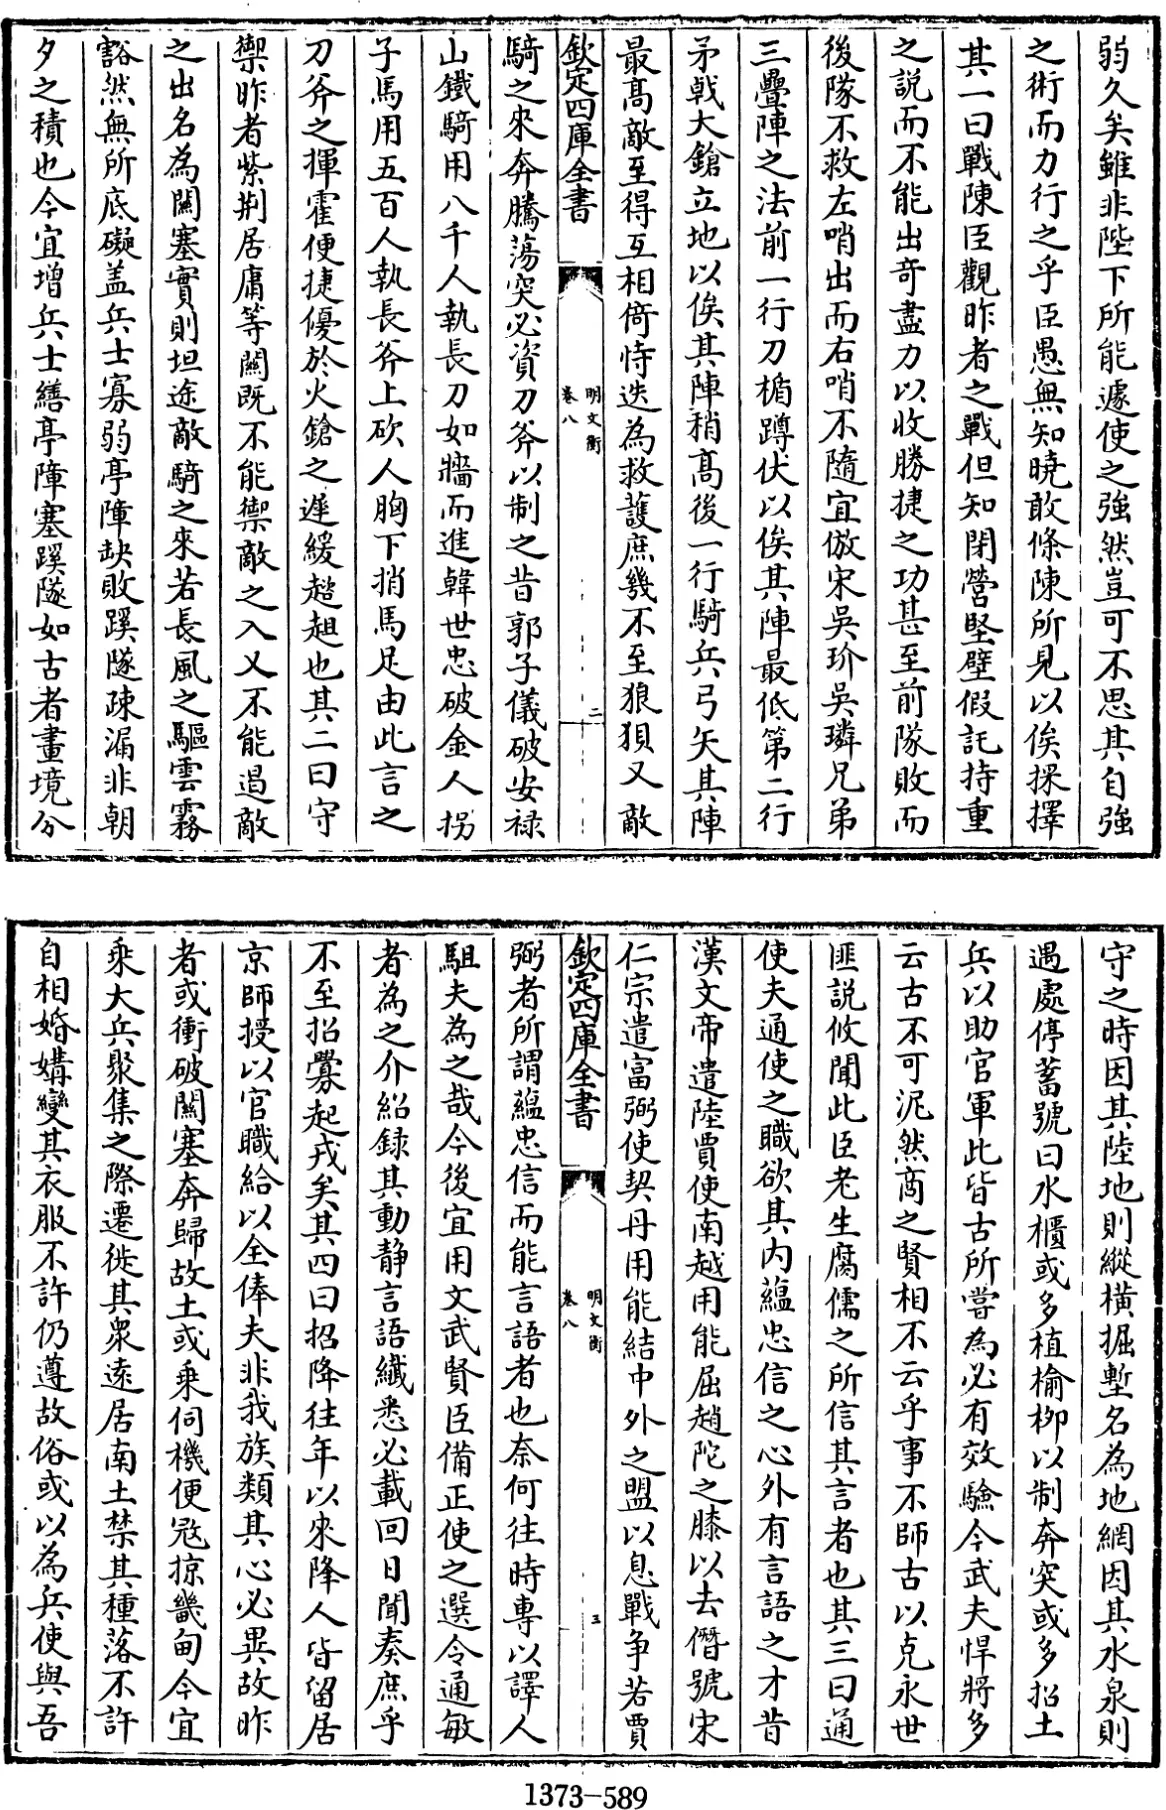 弱久矣雖非陛下所能遽使之強然豈可不思其自強
之術而力行之乎臣愚無知曉敢條陳所見以俟採擇
其一曰戰陳臣觀昨者之戰但知閉營堅壁假託持重
之說而不能出奇盡力以收勝捷之功甚至前隊敗而
後隊不救左哨出而右哨不隨宜倣宋吳玠吳璘兄弟
三疊陣之法前一行刀楯蹲伏以俟其陣最低第二行
矛戟大鎗立地以俟其陣稍高後一行騎兵弓矢其陣
最高敵至得互相倚恃迭為救護庶幾不至狼狽又敵
欽定四庫全書
明文衡
卷八
二
騎之來奔騰蕩突必資刀斧以制之昔郭子儀破安禄
山鐵騎用八千人執長刀如牆而進韓世忠破金人拐
子馬用五百人執長斧上砍人胸下捎馬足由此言之
刀斧之揮霍便捷優於火鎗之遲緩趦趄也其二曰守
禦昨者紫荆居庸等關既不能禦敵之入又不能遏敵
之出名為關塞實則坦途敵騎之來若長風之驅雲霧
豁然無所底礙盖兵士寡弱亭障缺敗蹊隧疎漏非朝
夕之積也今宜增兵士繕亭障塞蹊隧如古者畫境分
守之時因其陸地則縱橫掘塹名為地網因其水泉則
遇處停蓄號曰水櫃或多植榆柳以制奔突或多招土
兵以助官軍此皆古所嘗為必有效驗今武夫悍將多
云古不可泥然商之賢相不云乎事不師古以克永世
匪說攸聞此臣老生腐儒之所信其言者也其三曰通
使夫通使之職欲其内蘊忠信之心外有言語之才昔
漢文帝遣陸賈使南越用能屈趙陀之膝以去僭號宋
仁宗遣富弼使契丹用能結中外之盟以息戰争若賈
欽定四庫全書
明文衡
卷八
三
弼者所謂蘊忠信而能言語者也奈何往時專以譯人
駔夫為之哉今後宜用文武賢臣備正使之選令通敏
者為之介紹錄其動靜言語纖悉必載回日聞奏庶乎
不至招釁起戎矣其四曰招降往年以來降人皆留居
京師授以官職給以全俸夫非我族類其心必異故昨
者或衝破關塞奔歸故土或乘伺機便冦掠畿甸今宜
乘大兵聚集之際遷徙其衆逺居南土禁其種落不許
自相婚媾變其衣服不許仍遵故俗或以為兵使與吾
1373-589